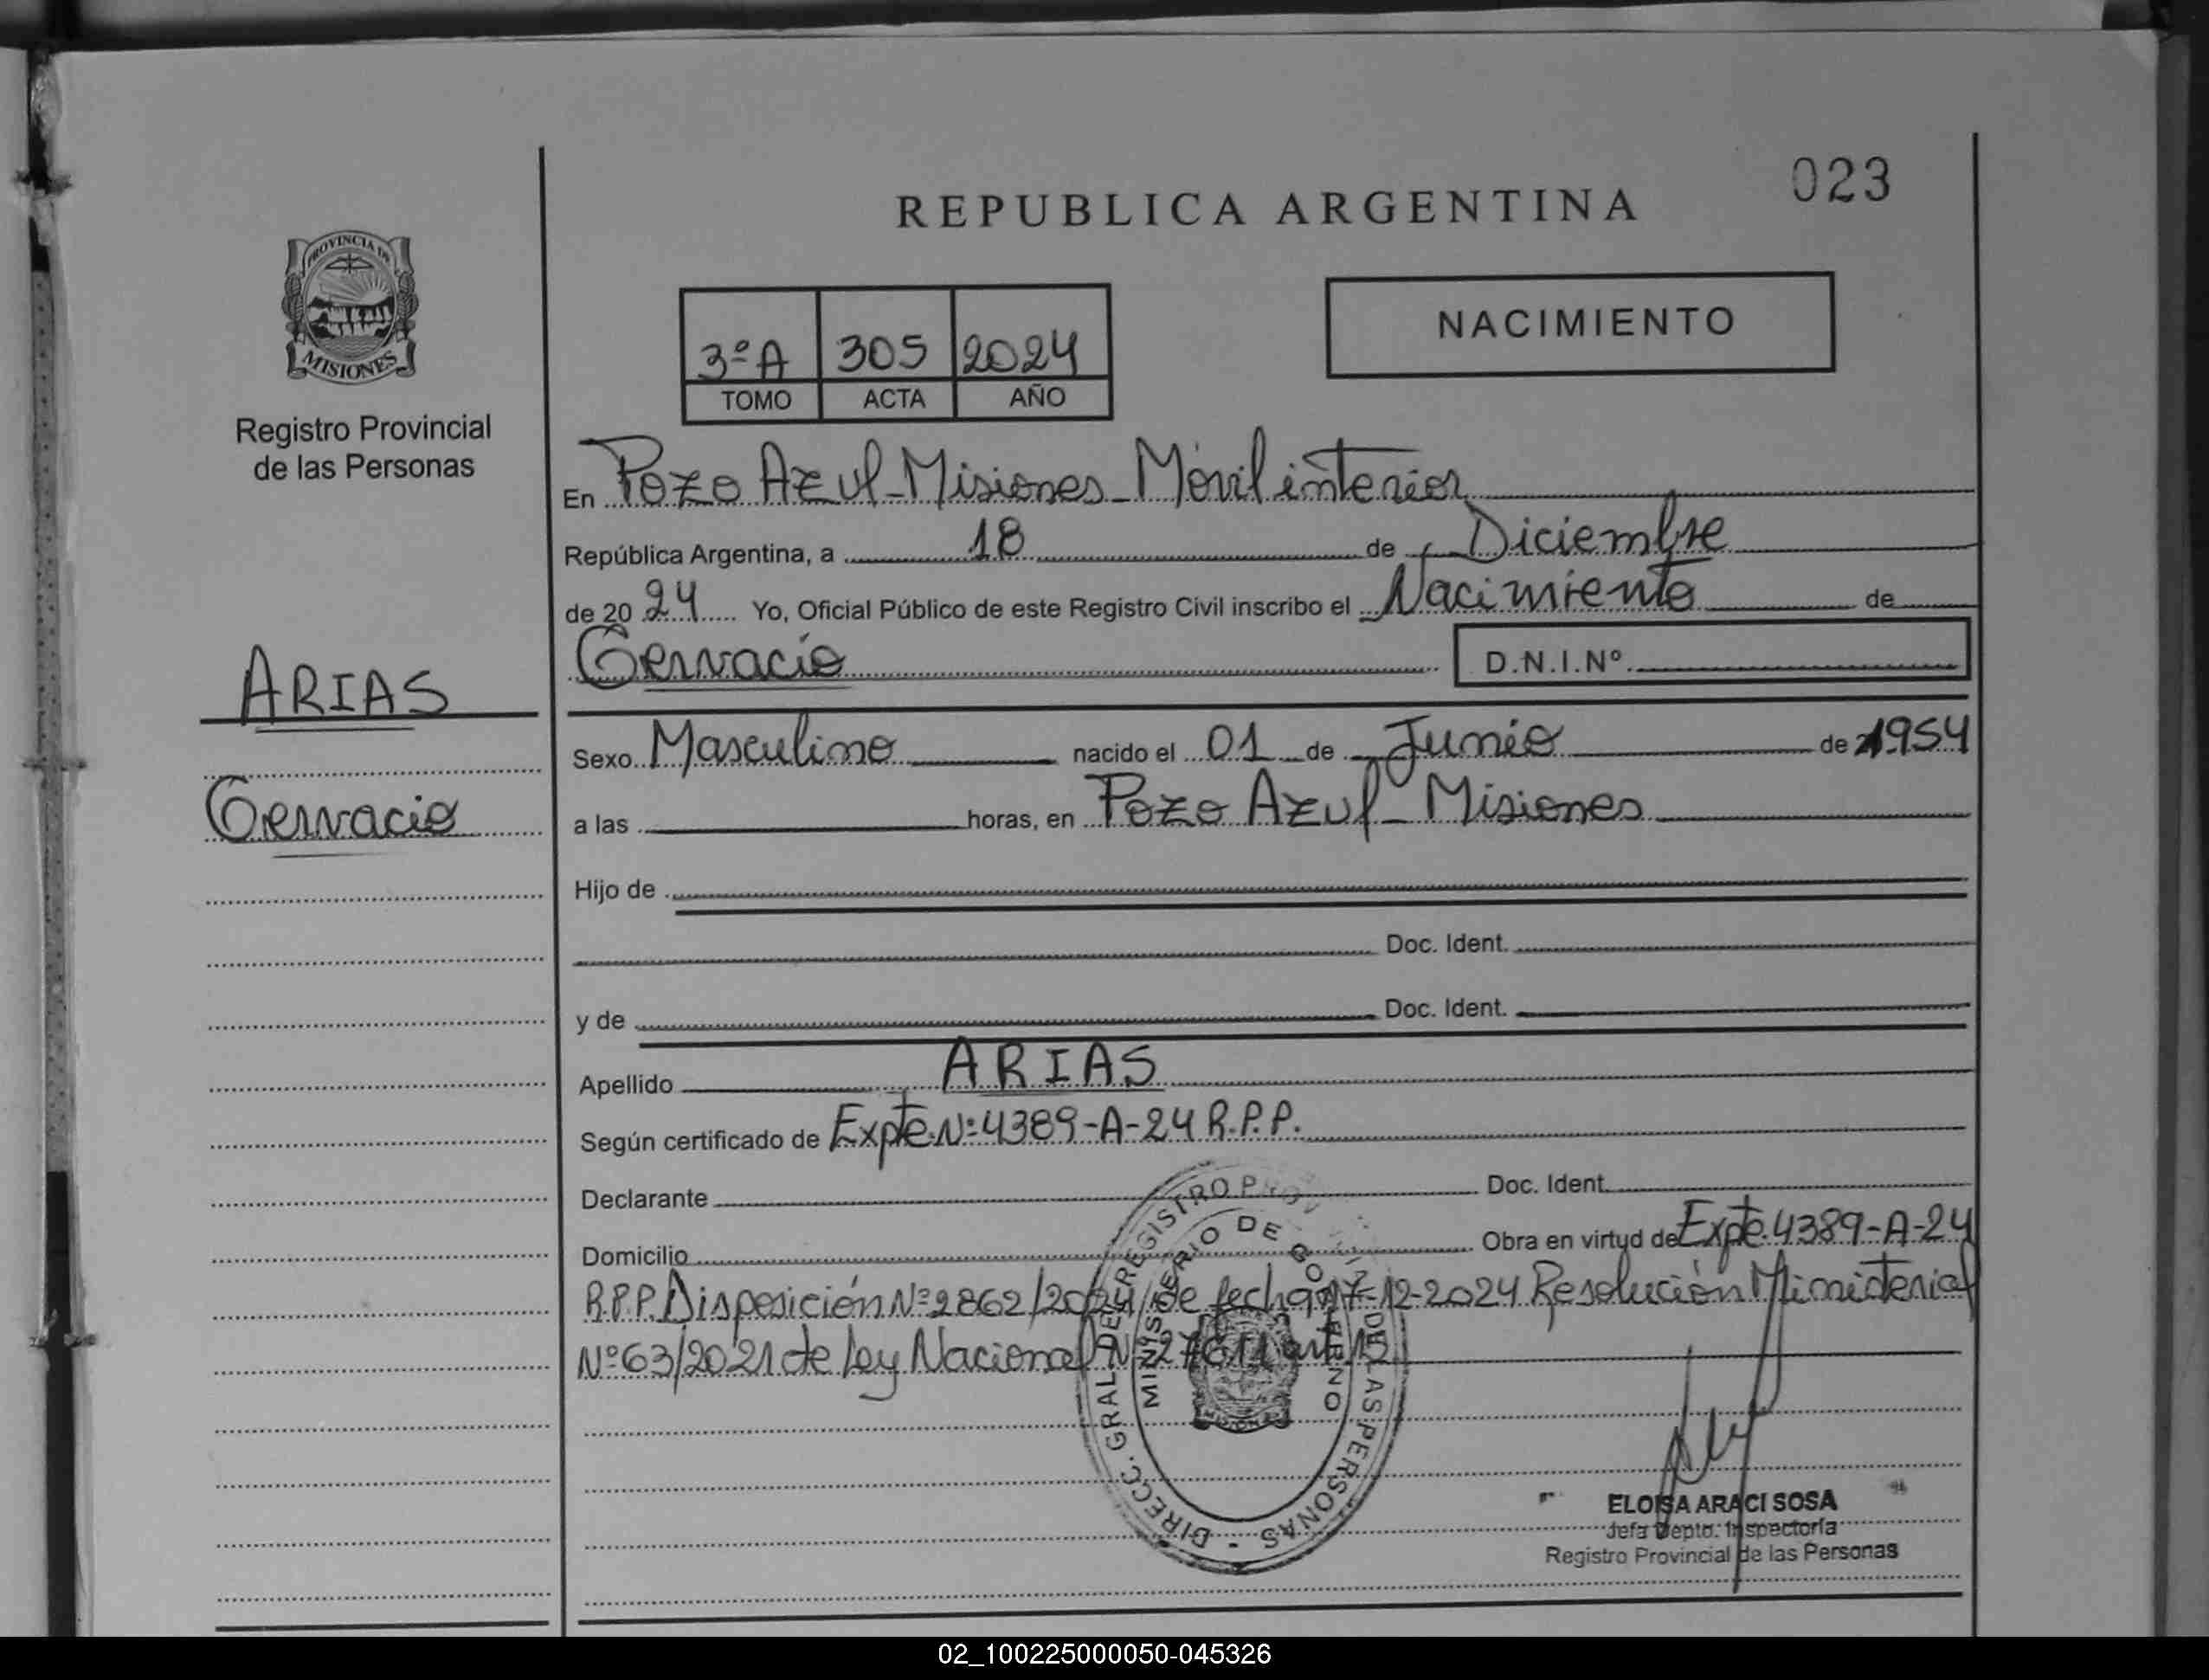 023
REPUBLICA ARGENTINA
PROVINCIA DE
MISIONES
Registro Provincial
de las Personas
NACIMIENTO
3ºA 305 2024
TOMO ACTA AÑO
En Pozo Azul - Misiones - Móvil interior
República Argentina, a 18 de Diciembre
de 2024 Yo, Oficial Público de este Registro Civil inscribo el Nacimiento de
Gervacio D.N.I.Nº
ARIAS
Gervacio
Sexo Masculino nacido el 01 de Junio de 1954
a las horas, en Pozo Azul - Misiones
Hijo de
Doc. Ident.
y de Doc. Ident.
Apellido ARIAS
Según certificado de Expte.Nº:4389-A-24 R.P.P.
Declarante Doc. Ident.
Domicilio Obra en virtud de Expte.4389-A-24
R.P.P. Disposición Nº2862/2024 de fecha 17-12-2024 Resolución Ministerial
Nº63/2021 de Ley Nacional Nº27611 art 15
DIRECC. GRAL DE REGISTRO PROV DE LAS PERSONAS -
MINISTERIO DE GOBIERNO
ELOISA ARACI SOSA
Jefa Depto. Inspectoría
Registro Provincial de las Personas
02_100225000050-045326